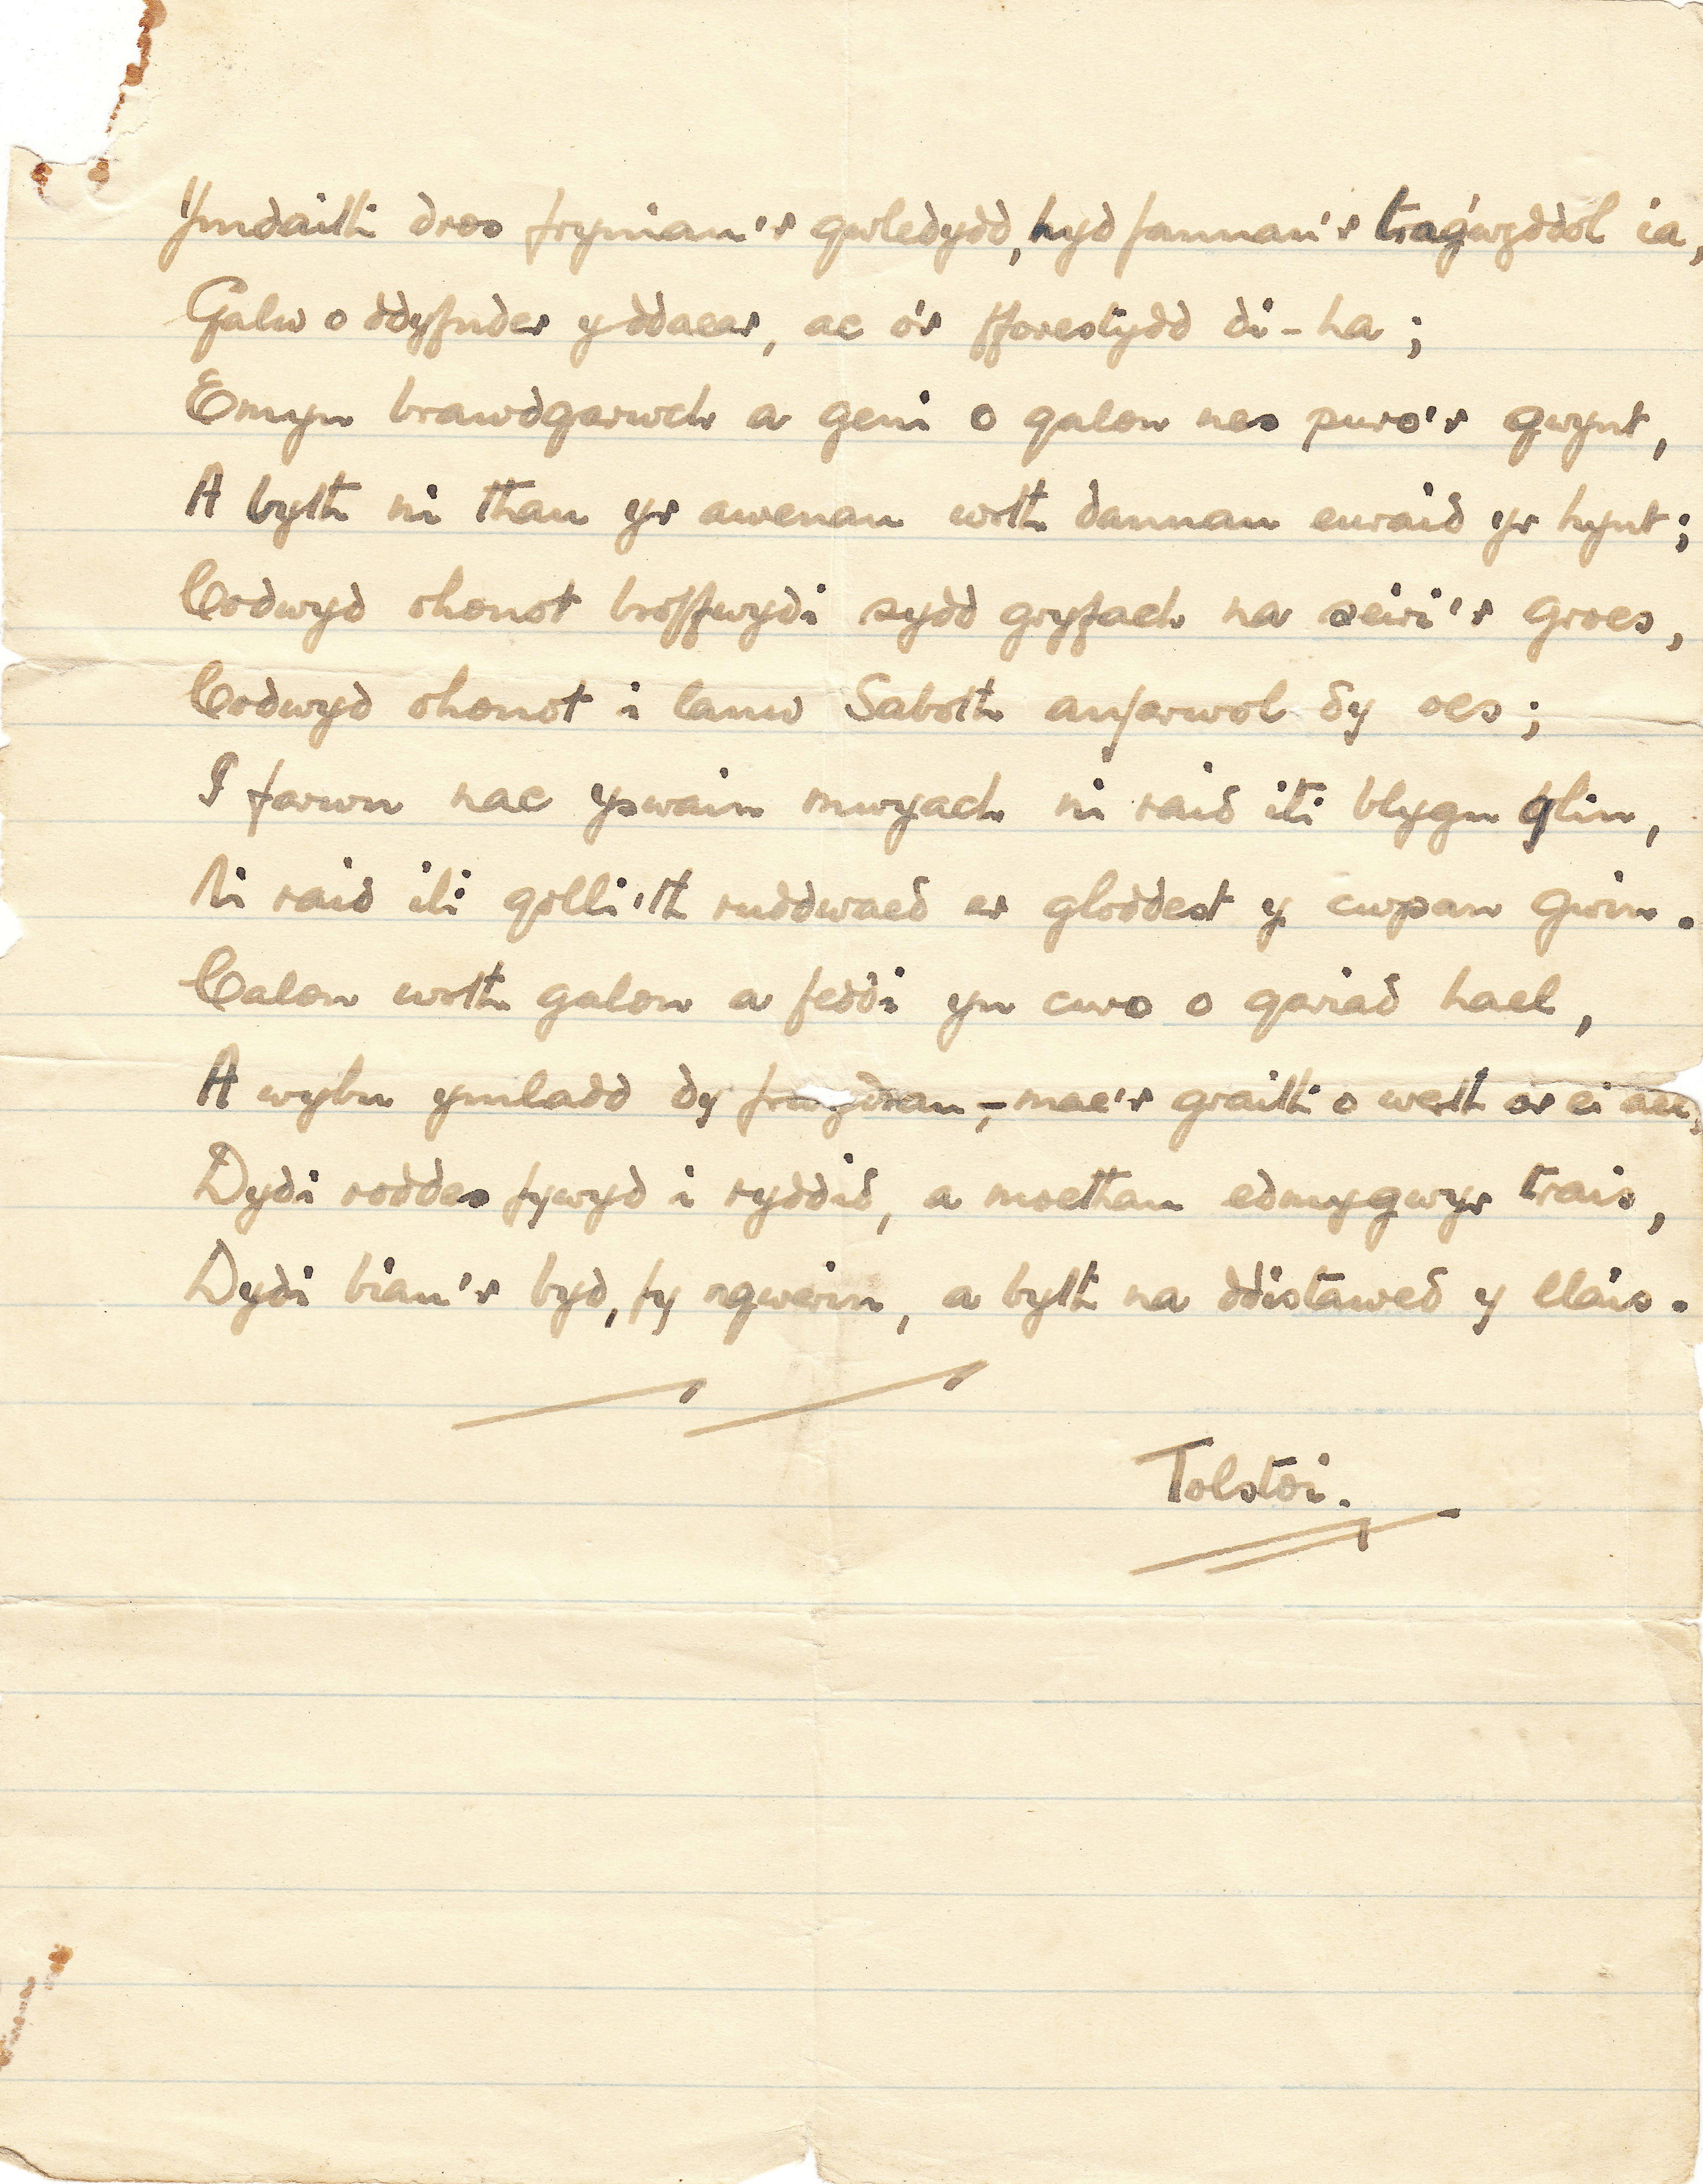 Ymdaith dros fryniau'r gwledydd, hyd fannau'r tragwyddol ia,
Galw o ddyfnder y ddaear, ac o'r fforestydd di-ha;
Emyn brawdgarwch a geni o galon nes puro'r gwynt,
A byth ni thau yr awenau wrth dannau euraid yr hynt;
Codwyd ohonot broffwydi sydd gryfach na seiri'r groes,
Codwyd ohonot i lanw Saboth anfarwol dy oes;
I farwn nac yswain mwyach ni raid iti blygu glin,
Ni raid iti golli'th ruddwaed er gloddest y cwpan gwin.
Calon wrth galon a feddi yn curo o gariad hael,
A wybu ymladd dy frwydrau,- mae'r graith o werth ar ei
Dydi roddes fywyd i ryddid, a moethau edmygwyr trais,
Dydi biau'r byd, fy ngwerin, a byth na ddistawed y llais.
Tolstoi.